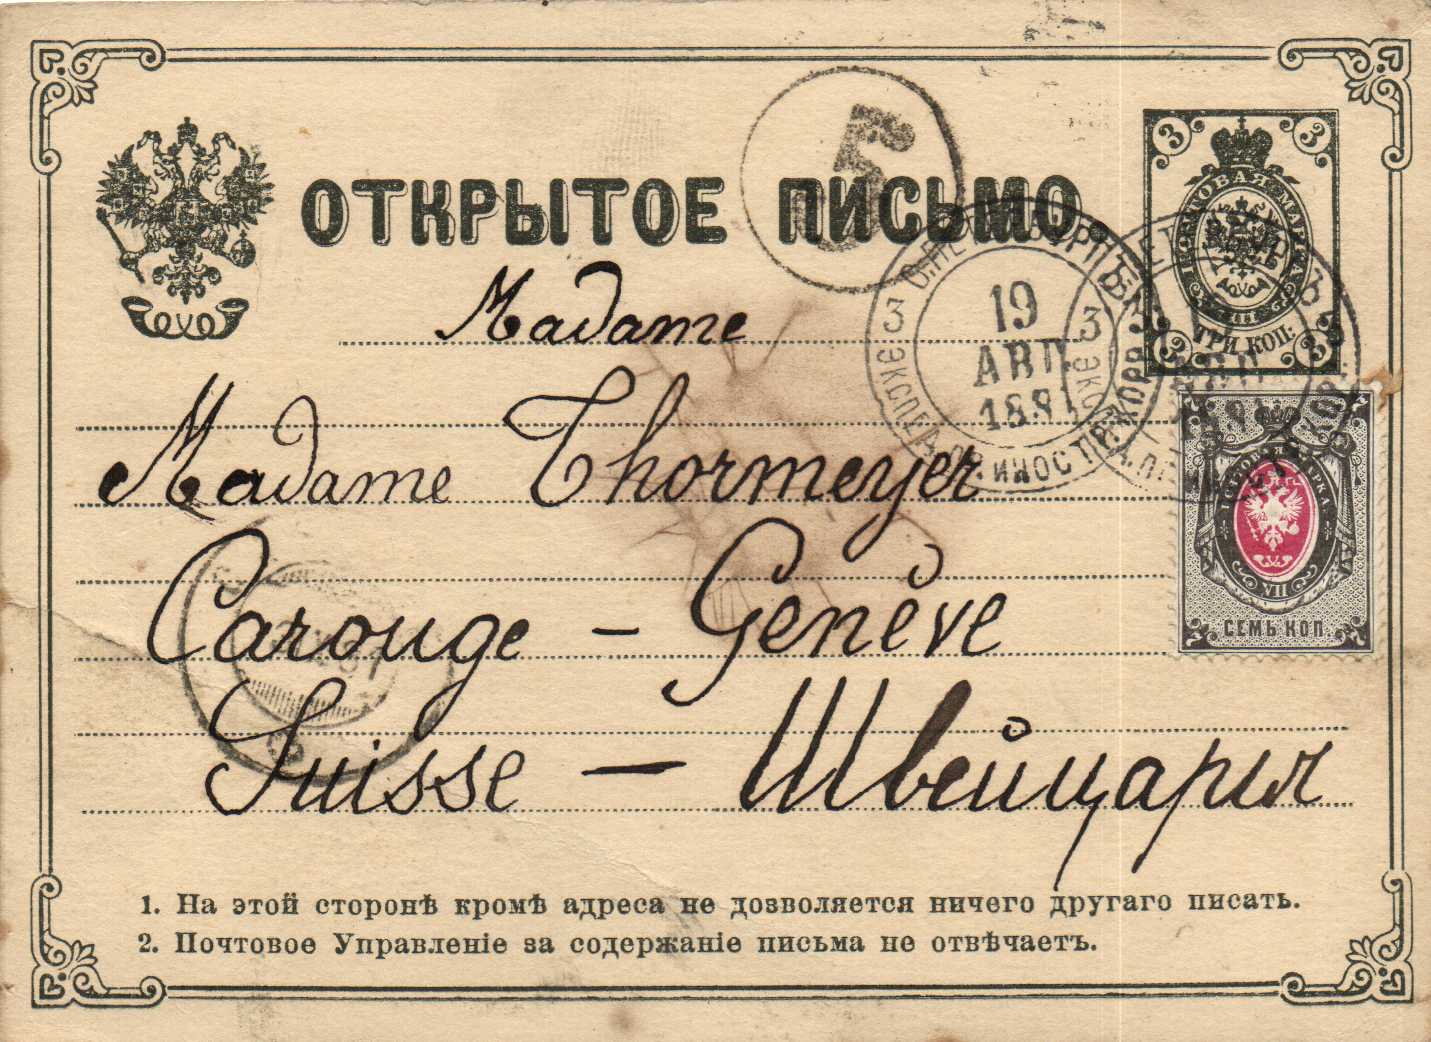 ОТКРЫТОЕ ПИСЬМО.
5
3 3
ПОЧТОВАЯ МАРКА
ТРИ КОП:
3 3
19
АВГ.
1881
3
3
Madame
Madame Thormeyer
Carouge – Genève
Suisse – Швейцарія
7 7
VII
СЕМЬ КОП.
7 7
1. На этой сторонѣ кромѣ адреса не дозволяется ничего другаго писать.
2. Почтовое Управленіе за содержаніе письма не отвѣчаетъ.